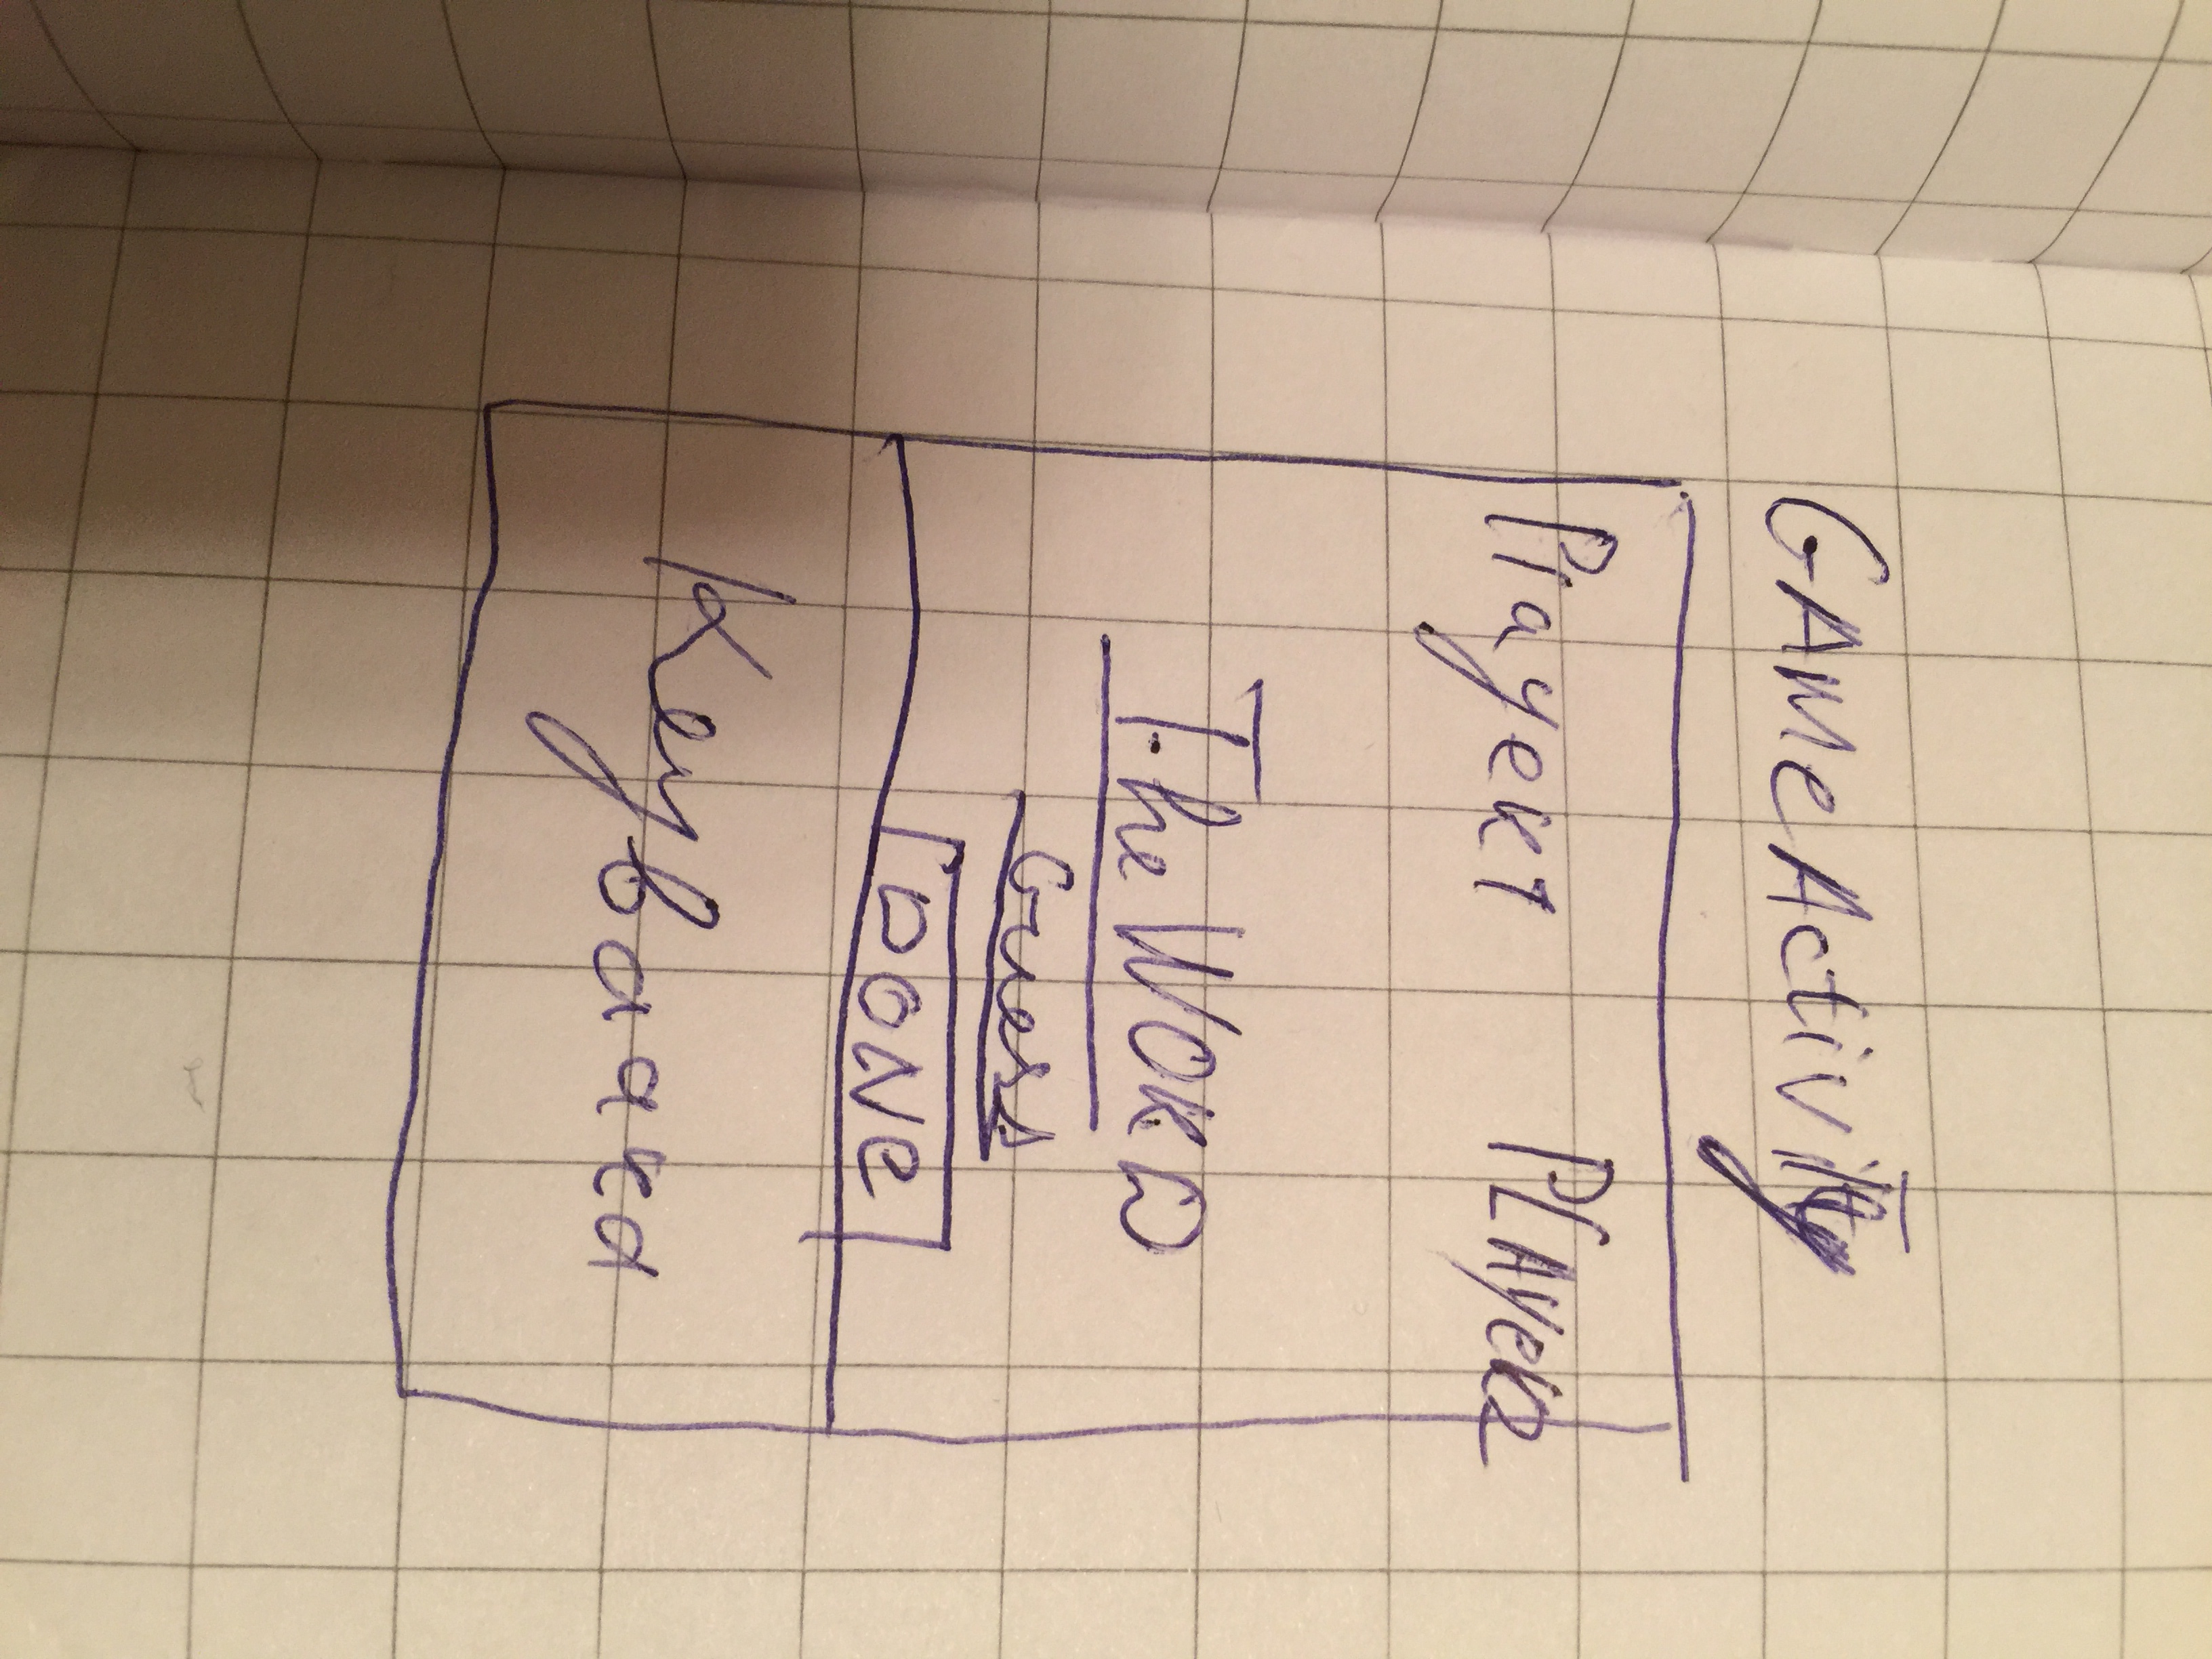 GAMe Activity
Player1 PLAyer2
The WORD
Guess
DONe
Keyboard